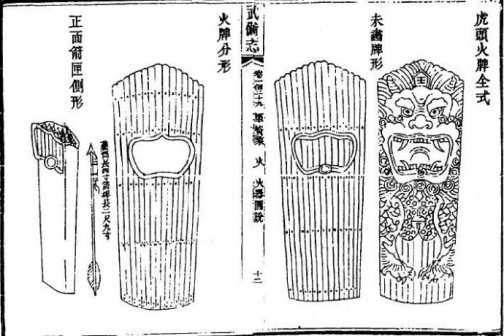 虎頭火牌全式
未畫牌形
武備志
卷一百二十九
軍資乘
火
火器圖說
十二
火牌分形
正面箭匣側形